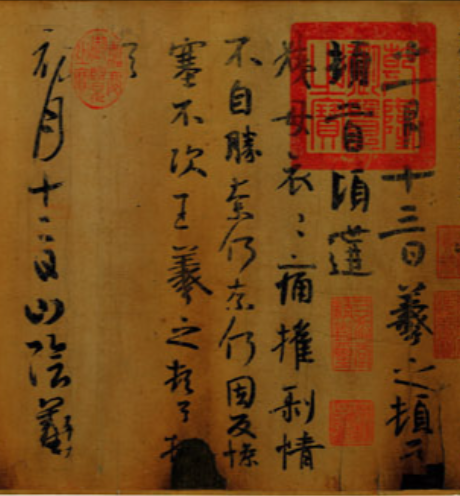 十一月十三日羲之頓首
頓首頃遘
姨母哀〻痛摧剝情
不自勝奈何奈何因反慘
塞不次王羲之頓首頓
首
初月十二日山陰羲之
乾隆御覽之寶